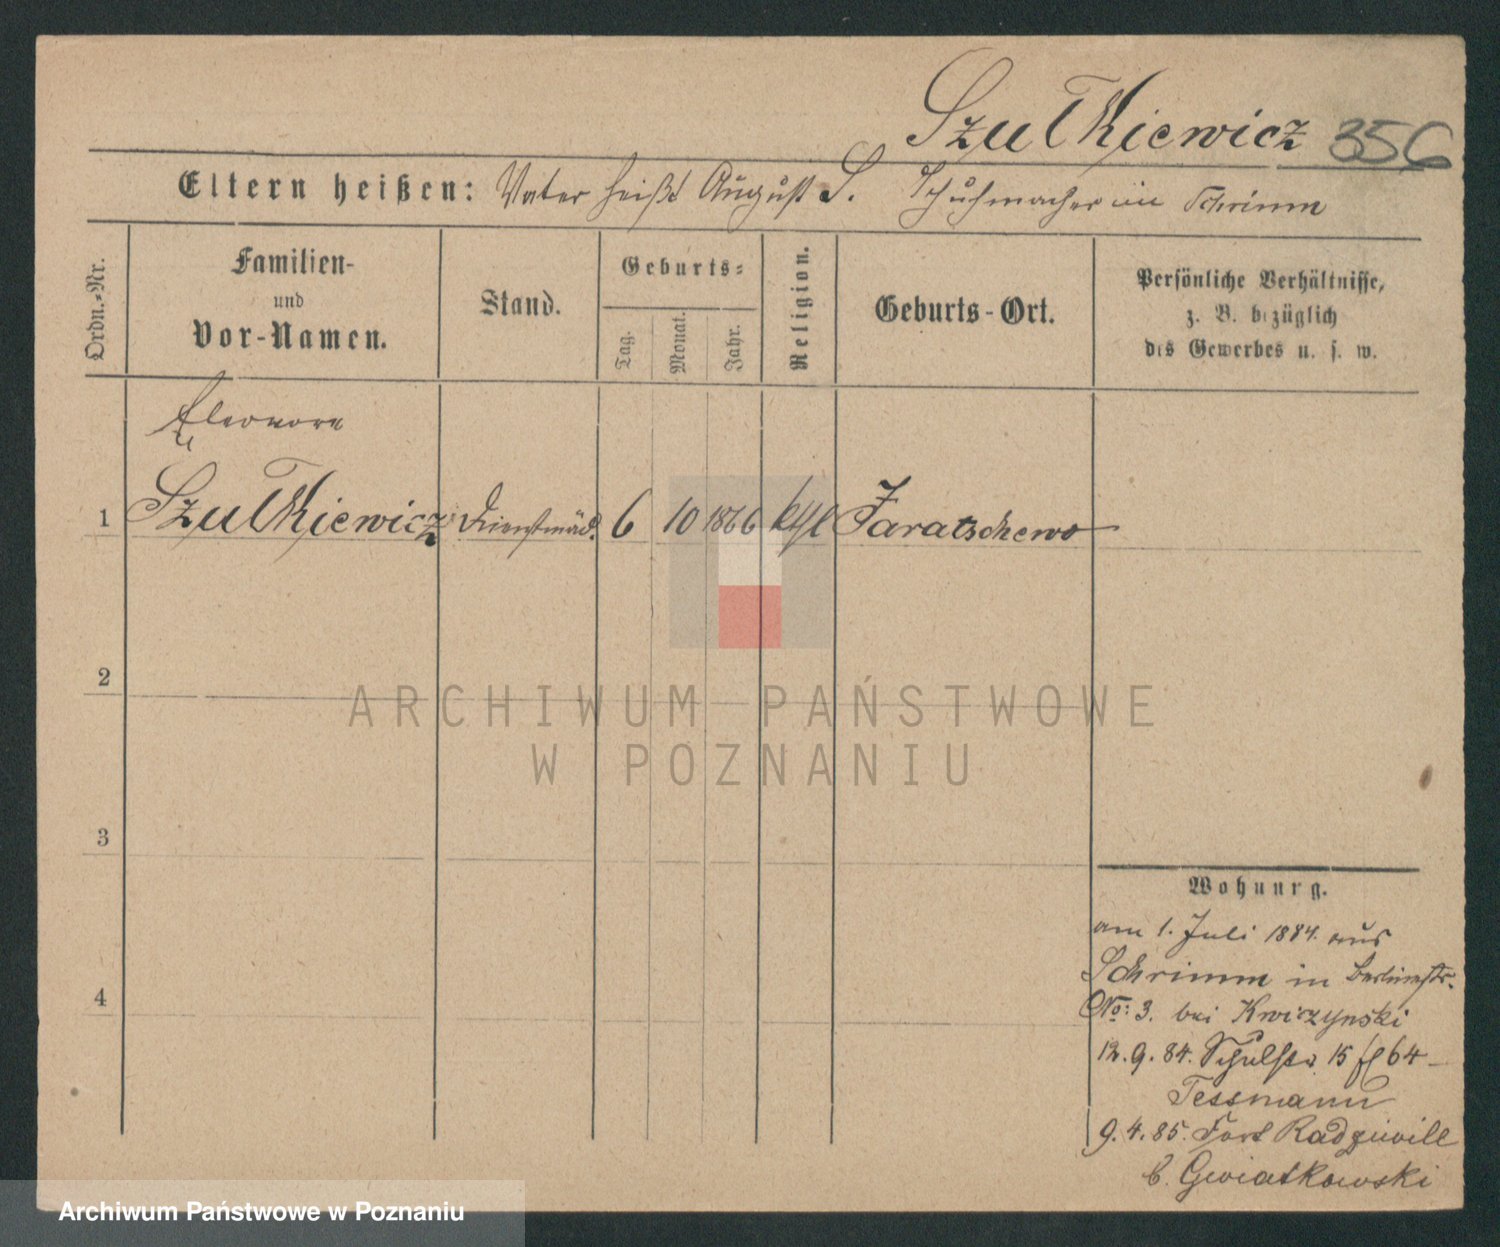 Szułkiewicz 356
Eltern heißen: Vater heißt August S. Schuhmacher in Schrimm
Ordn.-Nr.
Familien-
und
Vor-Namen.
Stand.
Geburts-
Tag.
Monat.
Jahr.
Religion.
Geburts-Ort.
Persönliche Verhältnisse,
z. B. bezüglich
des Gewerbes u. s. w.
Eleonore
1 Szułkiewicz Dienstmäd. 6 10 1866 ktl Jaratschewo
2
3
4
Wohnung.
am 1. Juli 1884. aus
Schrimm in Berlinerstr.
No: 3. bei Kwiczynski
12. 9. 84. Schulstr. 15 64
Tessmann
9. 4. 85. Fort Radziwill
b. Gwiatkowski
ARCHIWUM PAŃSTWOWE
W POZNANIU
Archiwum Państwowe w Poznaniu